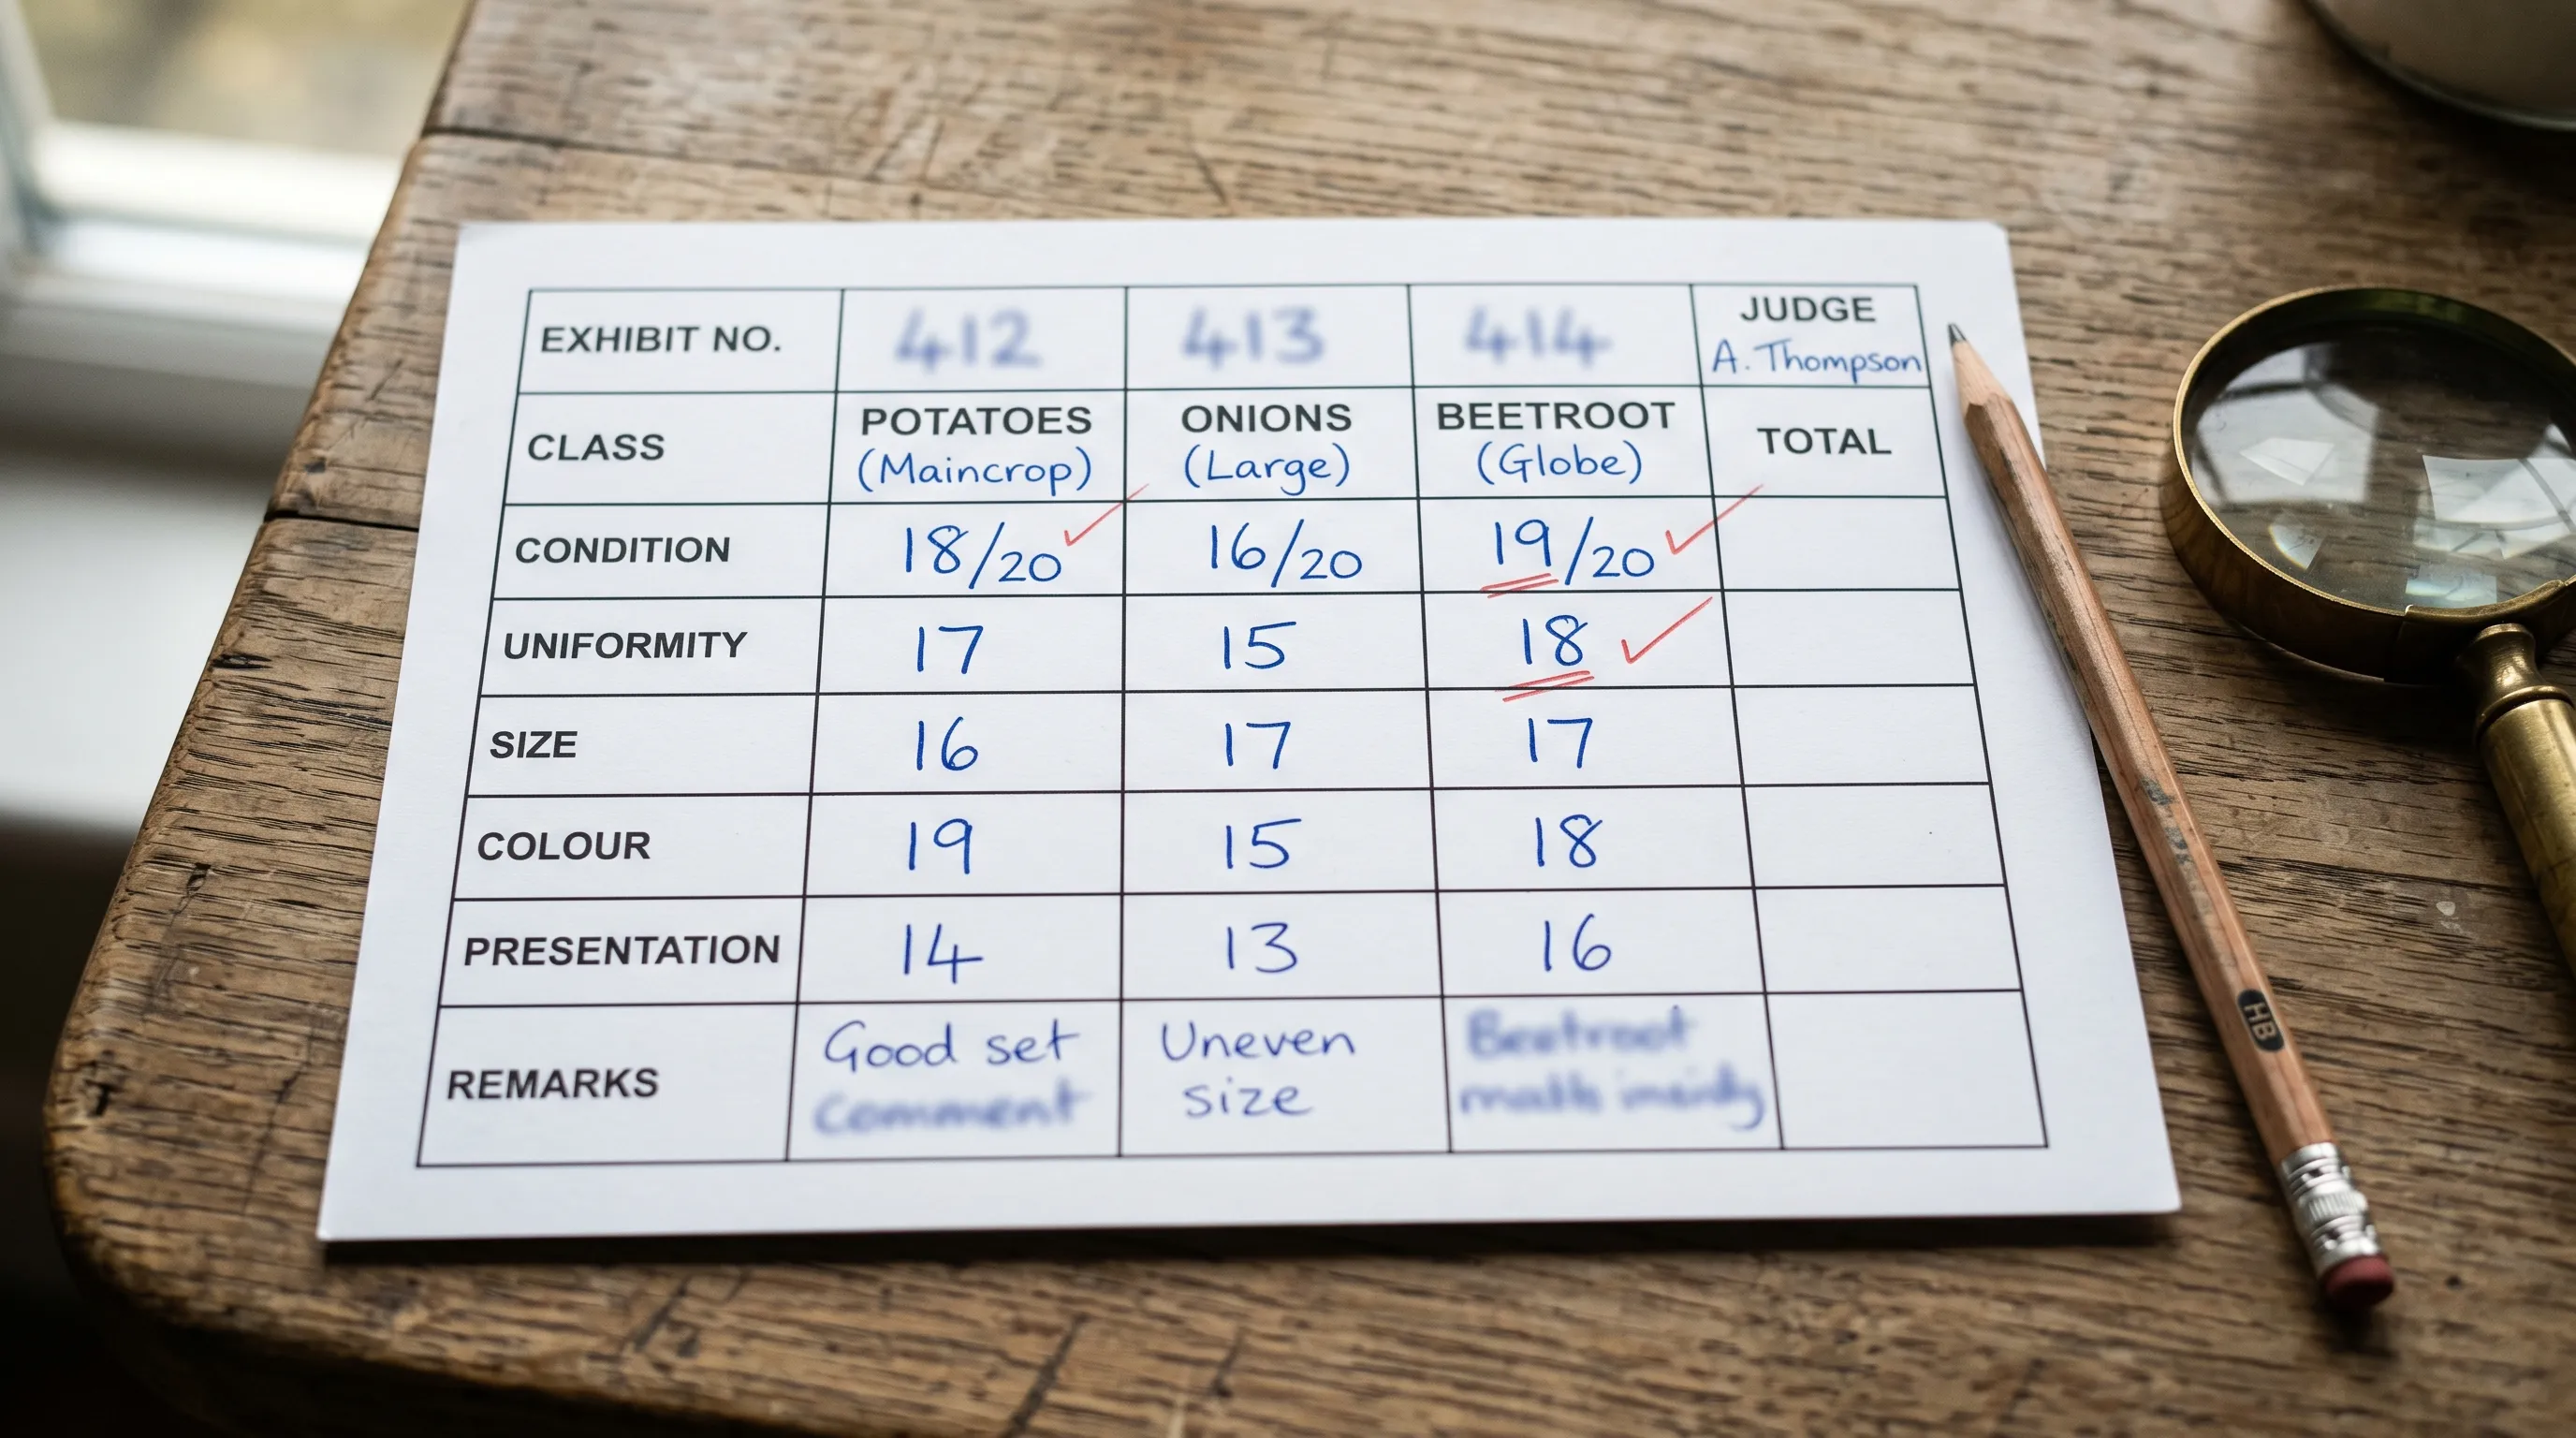 EXHIBIT NO. 412 413 414 JUDGE
A. Thompson
CLASS POTATOES ONIONS BEETROOT TOTAL
(Maincrop) (Large) (Globe)
CONDITION 18/20 16/20 19/20
UNIFORMITY 17 15 18
SIZE 16 17 17
COLOUR 19 15 18
PRESENTATION 14 13 16
REMARKS Good set Uneven Beetroot
comment size
HB